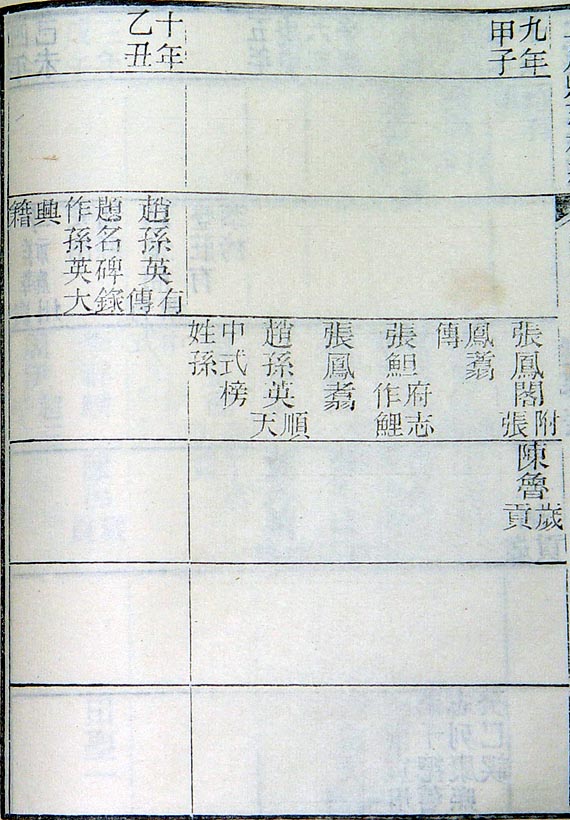 九年
甲子
張鳳閣附張
鳳翥
傳
張䱇府志作鯉
張鳳翥
趙孫英順天
中式榜
姓孫
陳魯歲貢
十年
乙丑
趙孫英有傳
題名碑錄
作孫英大
興籍